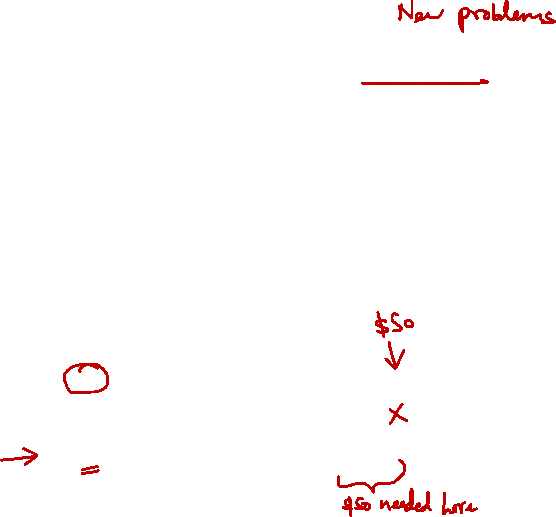 New problems
$50
x
=
$50 needed here